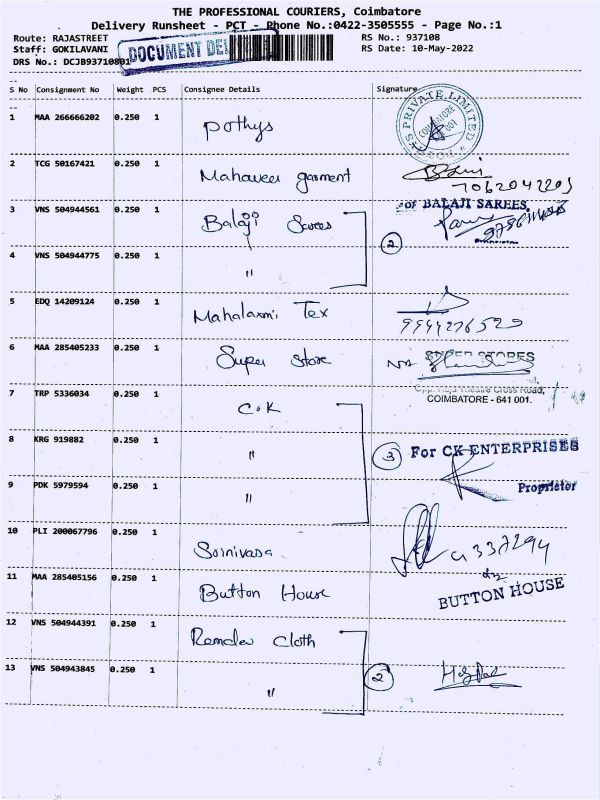 THE PROFESSIONAL COURIERS, Coimbatore
Delivery Runsheet - PCT - Phone No.:0422-3505555 - Page No.:1
Route: RAJASTREET
RS No.: 937108
Staff: GOKILAVANI
RS Date: 10-May-2022
DRS No.: DCJB93710801
DOCUMENT DEL
S No Consignment No Weight PCS Consignee Details Signature
1 MAA 266666202 0.250 1 Pothys
PRIVATE LIMITED
COIMBATORE
001
2 TCG 50167421 0.250 1 Mahaveer garment
7062042203
3 VNS 504944561 0.250 1 Balaji Sarees
For BALAJI SAREES,
4 VNS 504944775 0.250 1 "
2
5 EDQ 14209124 0.250 1 Mahalaxmi Tex
9944276520
6 MAA 285405233 0.250 1 Super Store
SUPER STORES
Cross Road,
COIMBATORE - 641 001.
7 TRP 5336034 0.250 1 C.K
8 KRG 919882 0.250 1 "
3 For CK ENTERPRISES
9 PDK 5979594 0.250 1 "
Proprietor
10 PLI 200067796 0.250 1 Srinivasa
11 MAA 285405156 0.250 1 Button House
BUTTON HOUSE
12 VNS 504944391 0.250 1 Ramdev Cloth
13 VNS 504943845 0.250 1 "
2